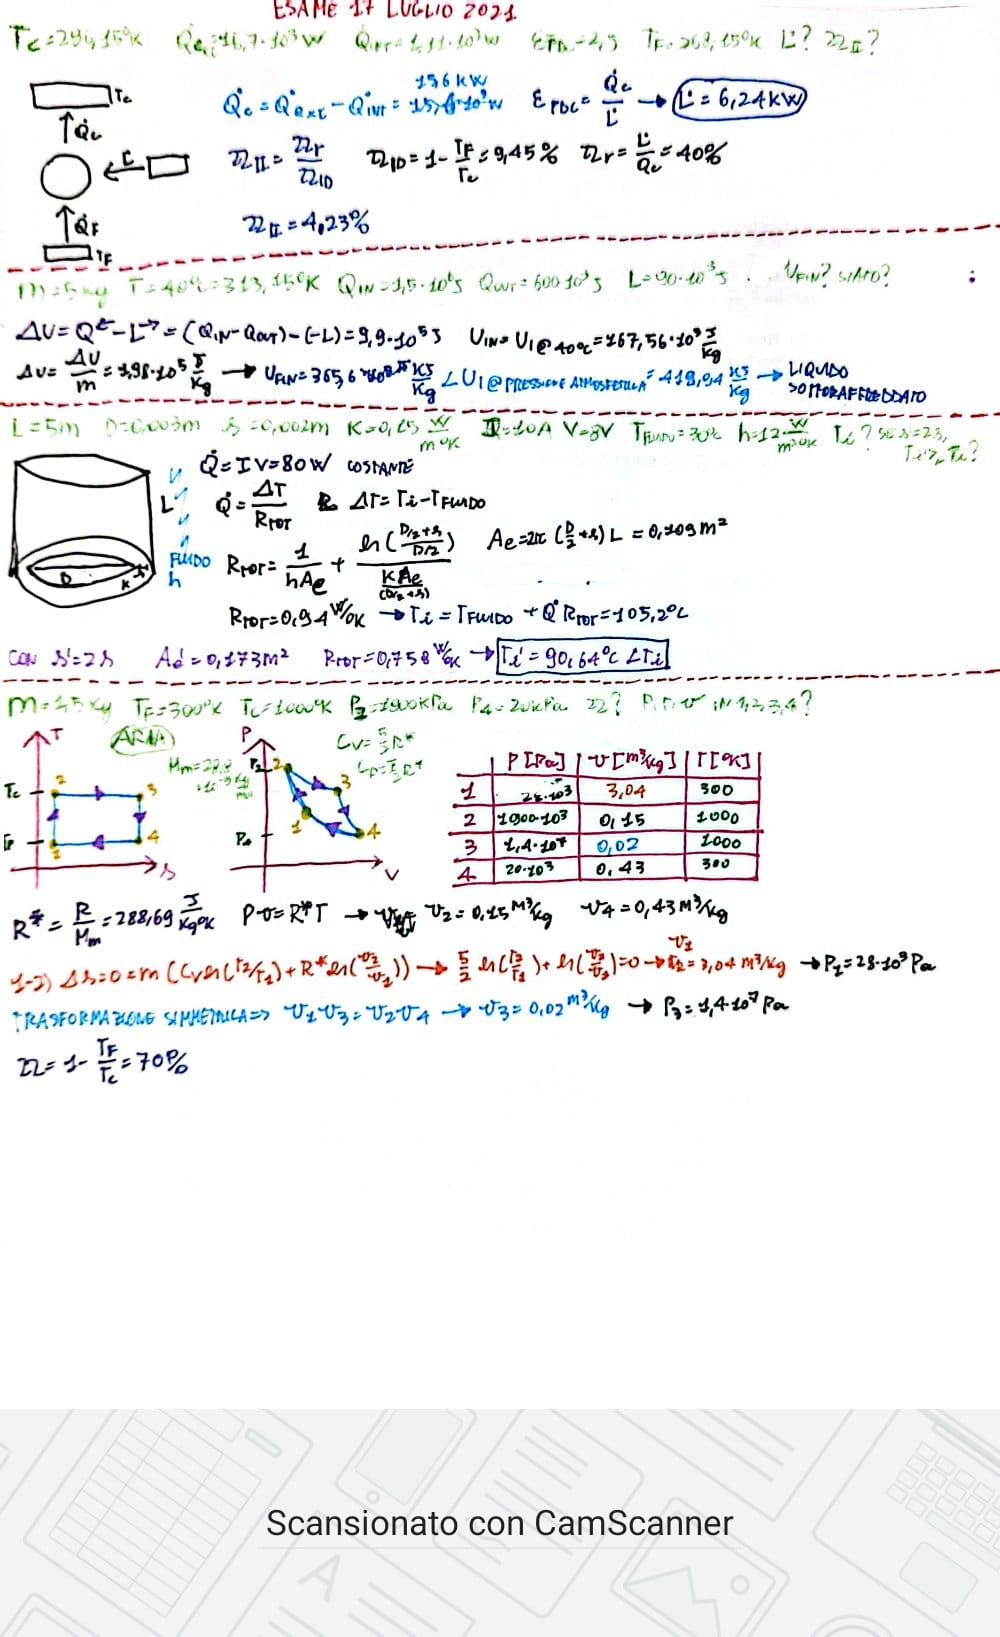 ESAME 17 LUGLIO 2021
Tc=296,15°K Q̇est=16,7·10³W Q̇int=1,11·10³W εPDC=2,5 TF=268,15°K L̇? ηII?
Tc
Q̇c
L̇
Q̇F
TF
156kW
Q̇c = Q̇ext - Q̇int = 15,6·10³W εPDC = Q̇c/L̇ → L̇ = 6,24kW
ηII = ηr/ηID ηID = 1 - TF/Tc = 9,45% ηr = L̇/Q̇c = 40%
ηII = 4,23%
m=5kg T=40°C=313,15°K QIN=1,5·10⁶J QOUT=600·10³J L=90·10³J. UFIN? STATO?
ΔU = Q← - L→ = (QIN-QOUT)-(-L) = 9,9·10⁵J UIN = U1@40°C = 167,56·10³ J/kg
Δu = ΔU/m = 1,98·10⁵ J/kg → UFIN = 365,6 KJ/Kg < U1@PRESSIONE ATMOSFERICA = 418,94 KJ/Kg → LIQUIDO SOTTORAFFREDDATO
L=5m D=0,003m s=0,002m K=0,15 W/m°K I=10A V=8V TFLUIDO=30°C h=12 W/m²°K Ti? se s'=2s, Ti'≥Ti?
Q̇ = IV = 80W COSTANTE
L
Q̇ = ΔT/RTOT ΔT = Ti - TFLUIDO
FLUIDO
h
D
K
RTOT = 1/hAe + ln((D/2+s)/(D/2))/(KAe/(D/2+s)) Ae = 2π(D/2+s)L = 0,109m²
RTOT = 0,94 W/°K → Ti = TFLUIDO + Q̇RTOT = 105,2°C
CON s'=2s Ae' = 0,173m² RTOT = 0,758 W/°K → Ti' = 90,64°C < Ti
m=1,5kg TF=300°K Tc=1000°K P2=1900kPa P4=20kPa η? P,T,v in 1,2,3,4?
T ARIA P Cv=5/2R* Cp=7/2R*
Mm=28,8·10⁻³ kg/mol
Tc 2 3 P2 2 3
TF 1 4 P4 1 4
s v
P[Pa] v[m³/kg] T[°K]
1 28·10³ 3,04 300
2 1900·10³ 0,15 1000
3 1,4·10⁷ 0,02 1000
4 20·10³ 0,43 300
R* = R/Mm = 288,69 J/kg°K P·v=R*T → v2=0,15 m³/kg v4=0,43 m³/kg
1-2) Δs=0=m(Cvln(T2/T1)+R*ln(v2/v1)) → 5/2 ln(T2/T1)+ln(v2/v1)=0 → v1=3,04 m³/kg → P1=28·10³Pa
TRASFORMAZIONE SIMMETRICA => v1v3=v2v4 → v3=0,02 m³/kg → P3=1,4·10⁷Pa
η = 1 - TF/Tc = 70%
Scansionato con CamScanner